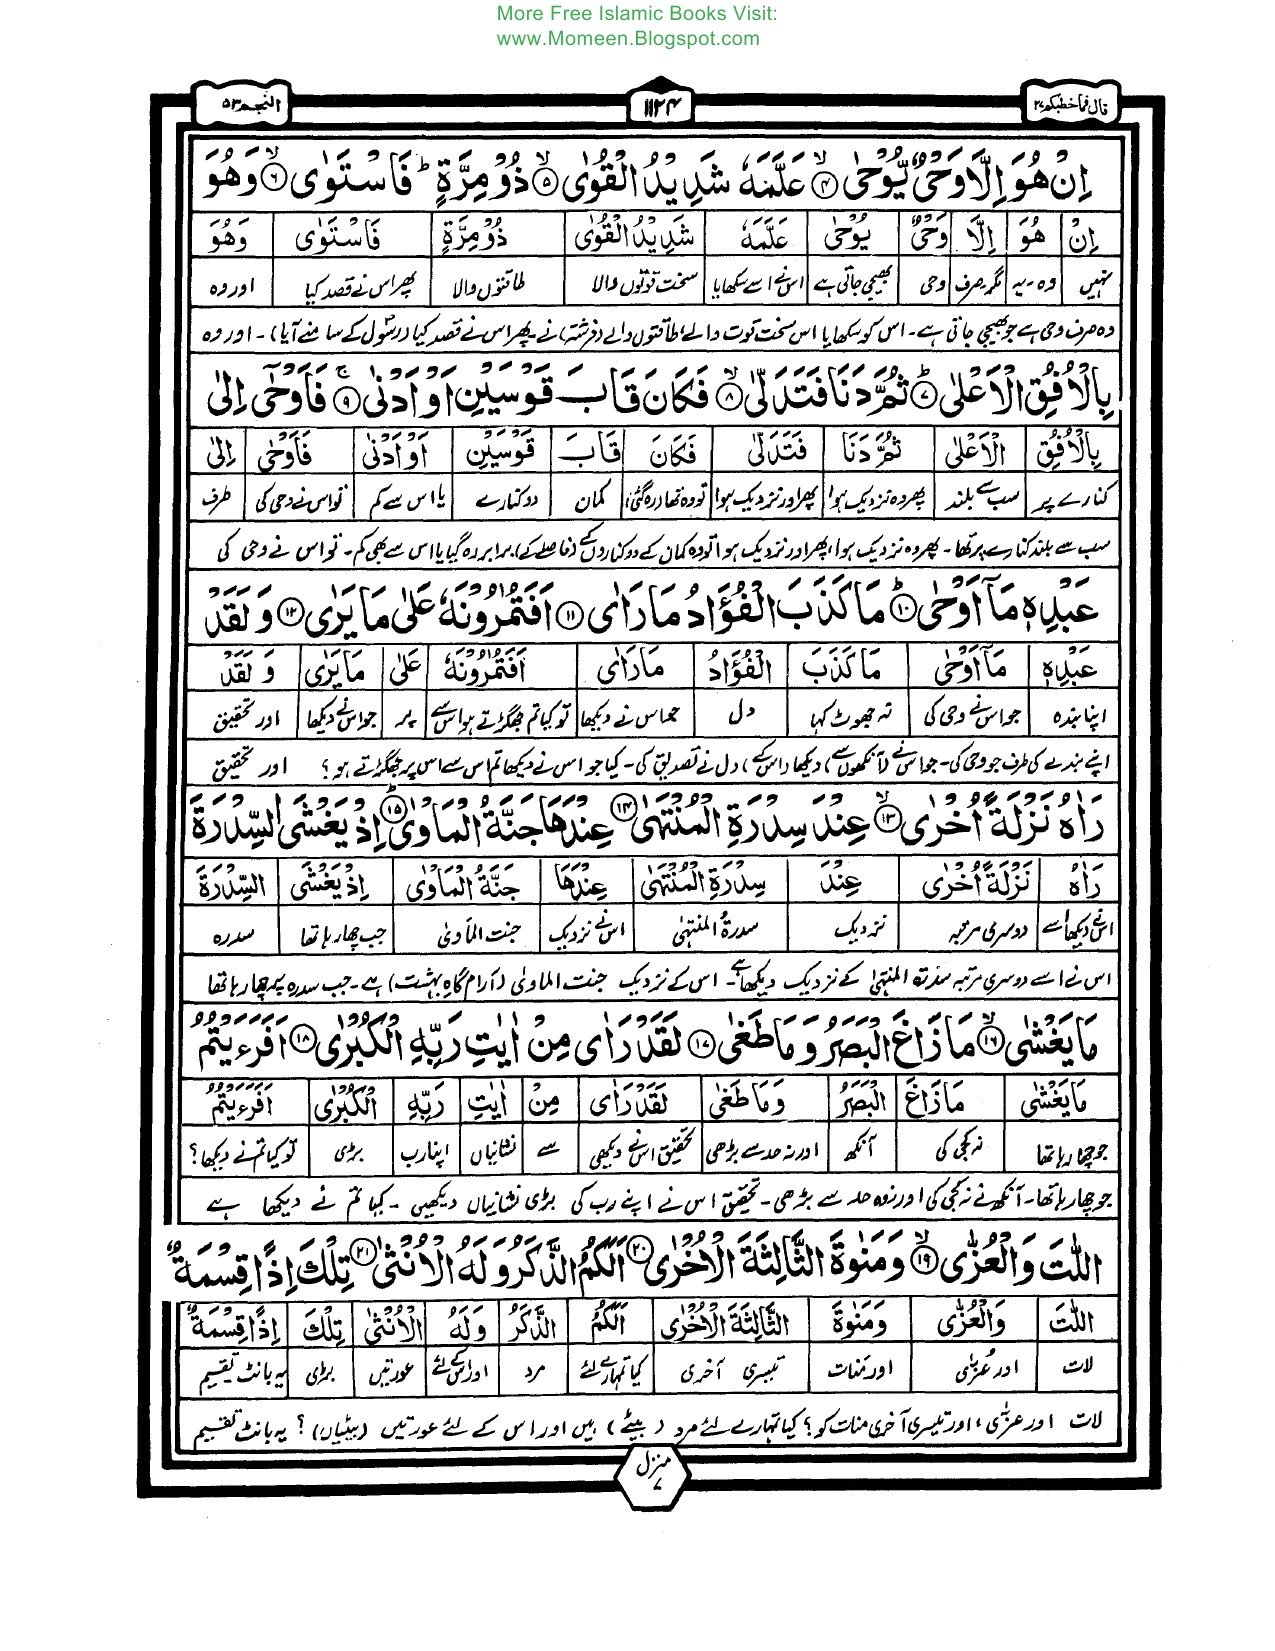 More Free Islamic Books Visit:
www.Momeen.Blogspot.com
قال فما خطبکم ۲۷
۱۱۲۴
النجم ۵۳
اِنْ هُوَ اِلَّا وَحْیٌ یُّوْحٰی ۴ عَلَّمَهٗ شَدِیْدُ الْقُوٰی ۵ ذُوْ مِرَّةٍ فَاسْتَوٰی ۶ وَهُوَ
اِنْ هُوَ اِلَّا وَحْیٌ یُوْحٰی عَلَّمَهٗ شَدِیْدُ الْقُوٰی ذُوْ مِرَّةٍ فَاسْتَوٰی وَهُوَ
نہیں وہ - یہ مگر صرف وحی بھیجی جاتی ہے اس نے اسے سکھایا سخت قوتوں والا طاقتوں والا پھر اس نے قصد کیا اور وہ
وہ صرف وحی ہے جو بھیجی جاتی ہے۔ اس کو سکھایا اس سخت قوت والے، طاقتوں والے (فرشتہ) نے پھر اس نے قصد کیا (رسول کے سامنے آیا) - اور وہ
بِالْاُفُقِ الْاَعْلٰی ۷ ثُمَّ دَنَا فَتَدَلّٰی ۸ فَكَانَ قَابَ قَوْسَیْنِ اَوْ اَدْنٰی ۹ فَاَوْحٰۤی اِلٰی
بِالْاُفُقِ الْاَعْلٰی ثُمَّ دَنَا فَتَدَلّٰی فَكَانَ قَابَ قَوْسَیْنِ اَوْ اَدْنٰی فَاَوْحٰۤی اِلٰی
کنارے پر سب سے بلند پھر وہ نزدیک ہوا پھر اور نزدیک ہوا تو وہ تھا (رہ گئی) کمان دو کنارے یا اس سے کم تو اس نے وحی کی طرف
سب سے بلند کنارے پر تھا - پھر وہ نزدیک ہوا، پھر اور نزدیک ہوا تو وہ کمان کے دو کناروں کے (فاصلے کے) برابر رہ گیا یا اس سے بھی کم - تو اس نے وحی کی
عَبْدِهٖ مَاۤ اَوْحٰی ۱۰ مَا كَذَبَ الْفُؤَادُ مَا رَاٰی ۱۱ اَفَتُمٰرُوْنَهٗ عَلٰی مَا یَرٰی ۱۲ وَ لَقَدْ
عَبْدِهٖ مَاۤ اَوْحٰی مَا كَذَبَ الْفُؤَادُ مَا رَاٰی اَفَتُمٰرُوْنَهٗ عَلٰی مَا یَرٰی وَ لَقَدْ
اپنا بندہ جو اس نے وحی کی نہ جھوٹ کہا دل جو اس نے دیکھا تو کیا تم جھگڑتے ہو اس سے پر جو اس نے دیکھا اور تحقیق
اپنے بندے کی طرف جو وحی کی - جو اس نے (آنکھوں سے) دیکھا (اس کے) دل نے تصدیق کی - کیا جو اس نے دیکھا تم اس سے اس پر جھگڑتے ہو؟ اور تحقیق
رَاٰهُ نَزْلَةً اُخْرٰی ۱۳ عِنْدَ سِدْرَةِ الْمُنْتَهٰی ۱۴ عِنْدَهَا جَنَّةُ الْمَاْوٰی ۱۵ اِذْ یَغْشَی السِّدْرَةَ
رَاٰهُ نَزْلَةً اُخْرٰی عِنْدَ سِدْرَةِ الْمُنْتَهٰی عِنْدَهَا جَنَّةُ الْمَاْوٰی اِذْ یَغْشَی السِّدْرَةَ
اس نے دیکھا اسے دوسری مرتبہ نزدیک سدرۃ المنتہیٰ اس نے نزدیک جنت الماویٰ جب چھا رہا تھا سدرہ
اس نے اسے دوسری مرتبہ سدرۃ المنتہیٰ کے نزدیک دیکھا ہے - اس کے نزدیک جنت الماویٰ (آرام گاہ بہشت) ہے - جب سدرہ پر چھا رہا تھا
مَا یَغْشٰی ۱۶ مَا زَاغَ الْبَصَرُ وَمَا طَغٰی ۱۷ لَقَدْ رَاٰی مِنْ اٰیٰتِ رَبِّهِ الْكُبْرٰی ۱۸ اَفَرَءَیْتُمُ
مَا یَغْشٰی مَا زَاغَ الْبَصَرُ وَمَا طَغٰی لَقَدْ رَاٰی مِنْ اٰیٰتِ رَبِّهِ الْكُبْرٰی اَفَرَءَیْتُمُ
جو چھا رہا تھا نہ کجی کی آنکھ اور نہ حد سے بڑھی تحقیق اس نے دیکھی سے نشانیاں اپنا رب بڑی تو کیا تم نے دیکھا؟
جو چھا رہا تھا - آنکھ نے نہ کجی کی اور نہ وہ حد سے بڑھی - تحقیق اس نے اپنے رب کی بڑی نشانیاں دیکھیں - کیا تم نے دیکھا ہے
اللّٰتَ وَالْعُزّٰی ۱۹ وَمَنٰوةَ الثَّالِثَةَ الْاُخْرٰی ۲۰ اَلَكُمُ الذَّكَرُ وَلَهُ الْاُنْثٰی ۲۱ تِلْكَ اِذًا قِسْمَةٌ
اللّٰتَ وَالْعُزّٰی وَمَنٰوةَ الثَّالِثَةَ الْاُخْرٰی اَلَكُمُ الذَّكَرُ وَلَهُ الْاُنْثٰی تِلْكَ اِذًا قِسْمَةٌ
لات اور عُزیٰ اور منات تیسری آخری کیا تمہارے لئے مرد اور اس کے لئے عورتیں بڑی یہ بانٹ تقسیم
لات اور عزیٰ، اور تیسری آخری منات کو؟ کیا تمہارے لئے مرد (بیٹے) ہیں اور اس کے لئے عورتیں (بیٹیاں)؟ یہ بانٹ تقسیم
منزل ۷